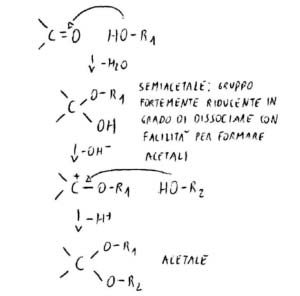 C=O HO-R1
-H2O
O-R1
C
OH
SEMIACETALE: GRUPPO
FORTEMENTE RIDUCENTE IN
GRADO DI DISSOCIARE CON
FACILITA' PER FORMARE
ACETALI
-OH-
+
C=O-R1 HO-R2
-H+
O-R1
C
O-R2
ACETALE